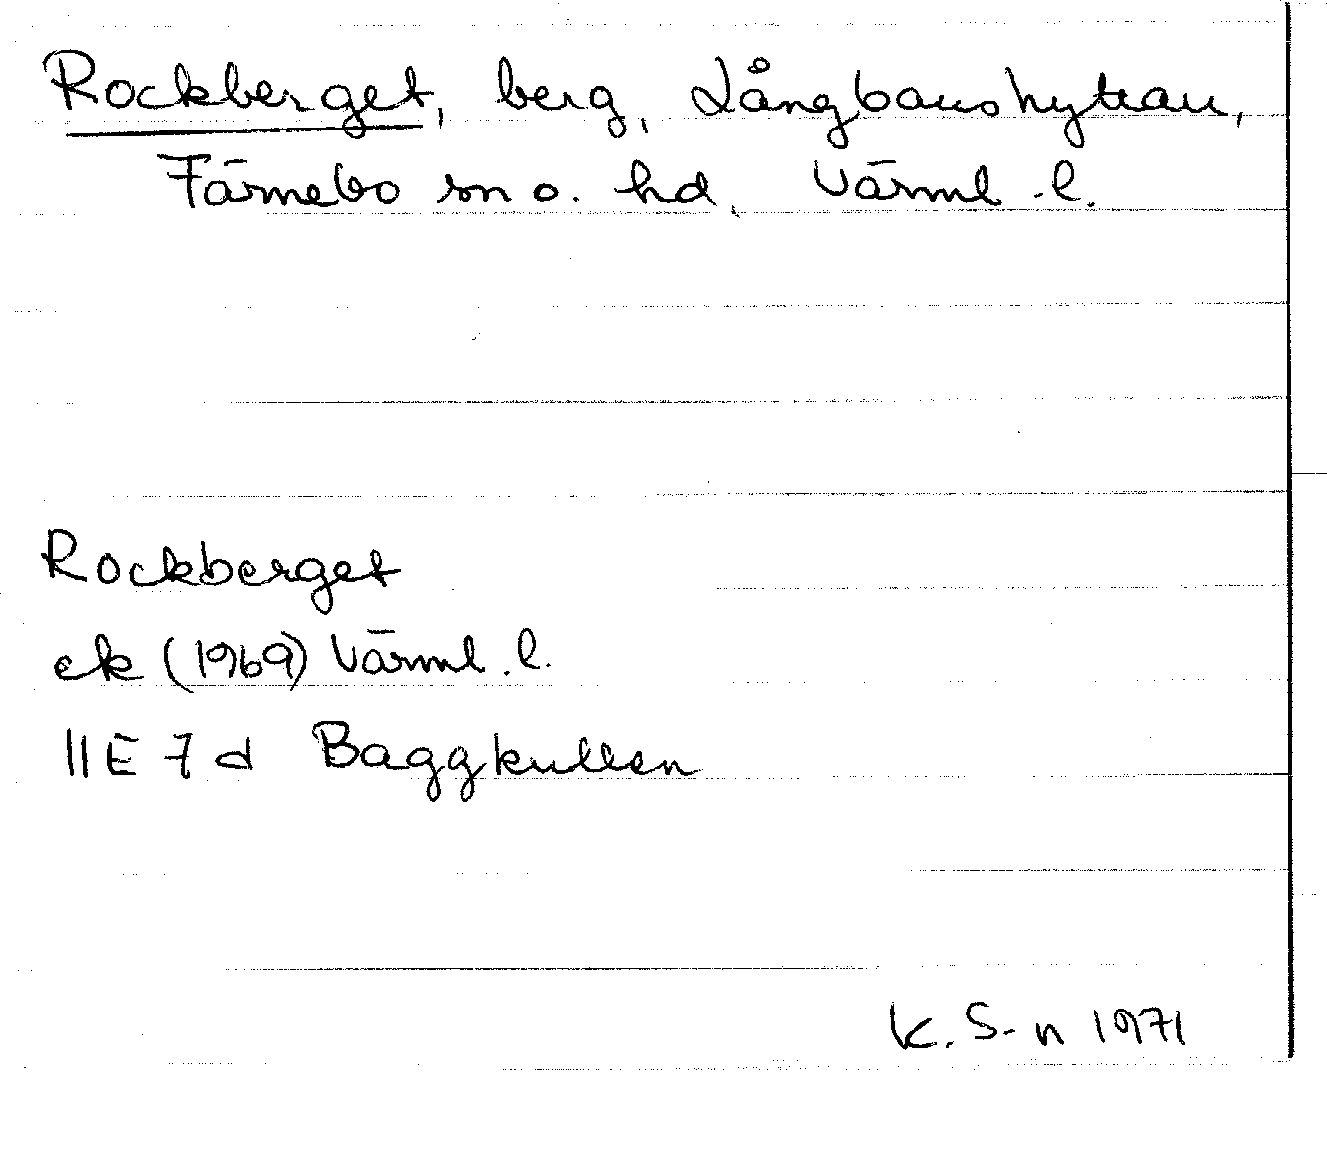 Rockberget, berg, Långbanshyttan,
Färnebo sn o. hd, Värml. l.
Rockberget
ek (1969) Värml. l.
11E 7d Baggkullen
K. S-n 1971